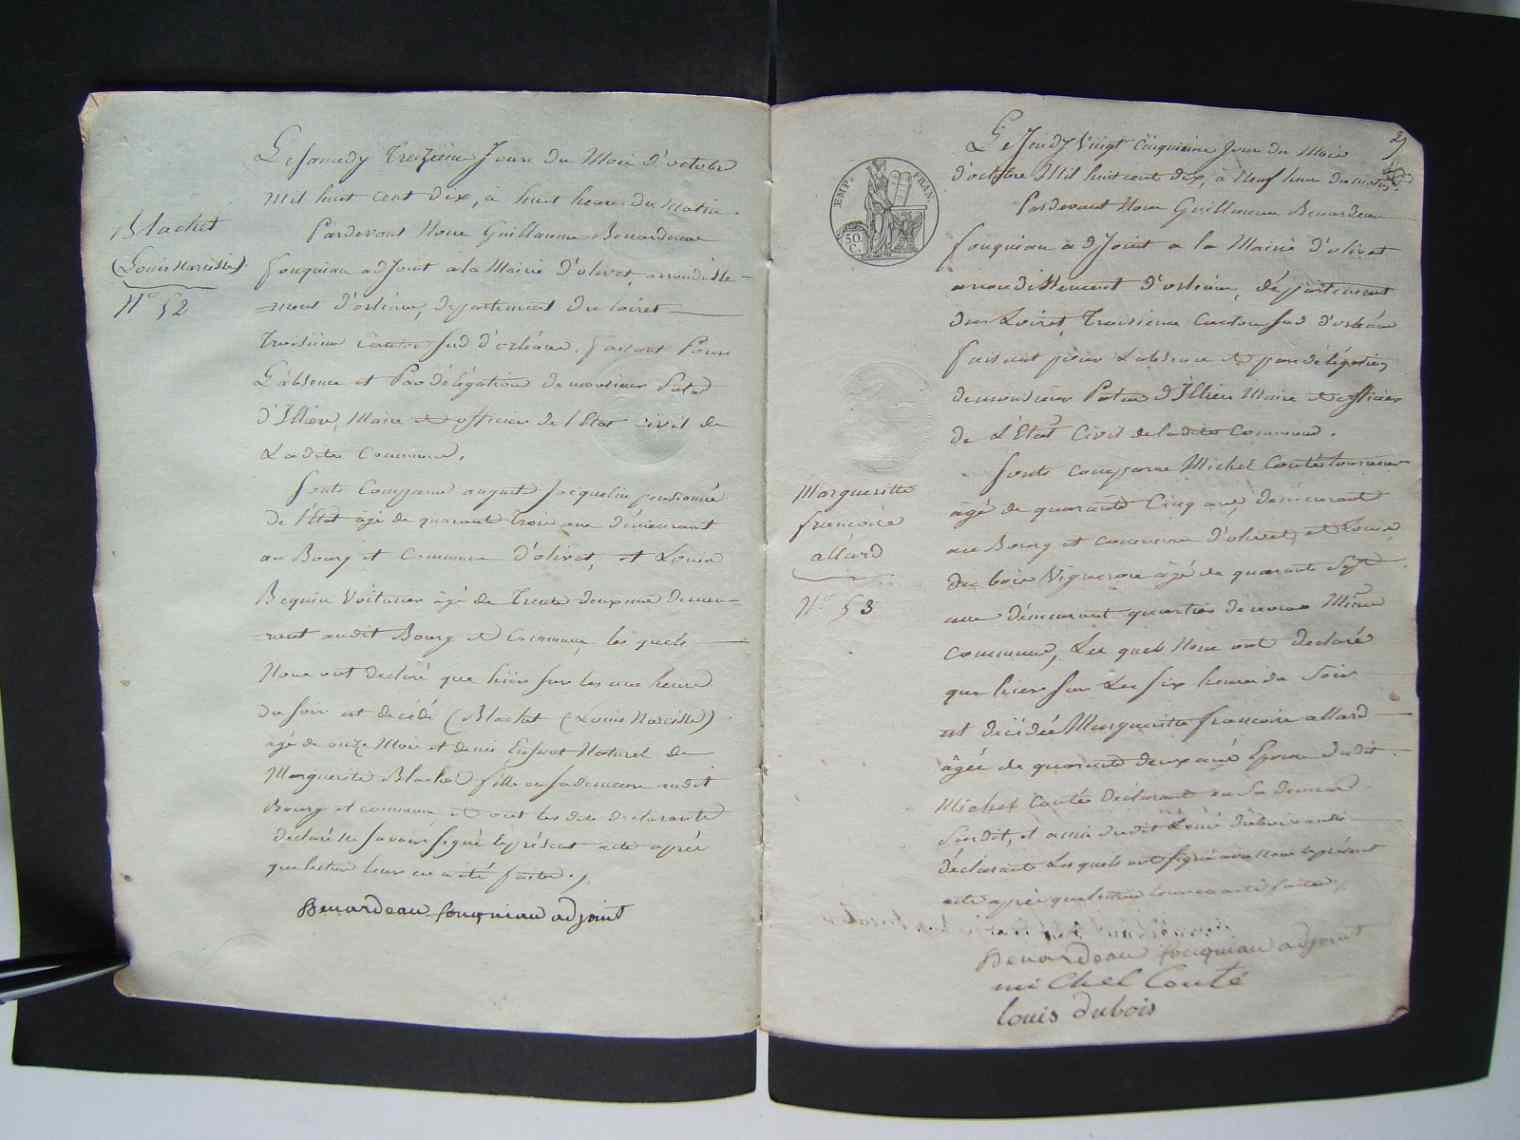 Le samedy Treizieme Jour du Mois d'octobre
mil huit cent dix, à huit heures du Matin.
Pardevant Nous Guillaume Benardeau
fouqniau adjoint à la Mairie d'olivet, arrondisse-
ment d'orléans, departement du Loiret
Troisième canton sud d'orléans. faisant Pour
L'absence et Par délégation de monsieur
d'Illiers, Maire et officier de l'Etat civil de
Ladite Commune.
Blachet
(Louis Narcisse)
N° 52
sont Comparus august Jacquelin pensionné
de l'Etat âgé de quarante Trois ans demeurant
au Bourg et Commune d'olivet, et Louis
Bequin Voiturier âgé de Trente deux ans demeu-
rant audit Bourg et Commune, les quels
Nous ont declaré que hier sur les une heure
du soir est decédé (Blachet (Louis Narcisse)
âgé de onze Mois et demis Enfant Naturel de
Marguerite Blachet fille en sa demeure audit
Bourg et commune, et ont les dits declarants
declaré ne savoir signé le présent acte après
que lecture leur en a été faite.
Benardeau fouqniau adjoint
Le Jeudy Vingt Cinquieme Jour du Mois
d'octobre Mil huit cent dix, à Neuf heure du matin
Pardevant Nous Guillaume Benardeau
fouqniau adjoint a la Mairie d'olivet
arrondissement d'orléans, département
du Loiret, Troisieme Canton sud d'orléans
faisant pour L'absence et par délégation
de monsieur d'Illiers Maire et officier
de L'Etat Civil de ladite Commune.
EMP. FRAN.
50 C.
Margueritte
francoise
allard
N° 53
sonts comparus Michel Couté
âgé de quarante Cinq ans, demeurant
au Bourg et commune d'olivet, et Louis
Dubois Vigneron âgé de quarante sept
ans démeurant quartier de Même
commune, Les quels Nous ont declaré
que hier sur Les six heures du Soir
est decidée Margueritte francoise allard
âgée de quarante deux ans Epouse dudit
Michel Couté Déclarant en Sa demeure
Susdit, et amie dudit Louis Dubois aussi
déclarant Lesquels ont signé avec Nous le présent
acte après que lecture leur en a été faite.
Benardeau fouqniau adjoint
michel Couté
louis dubois